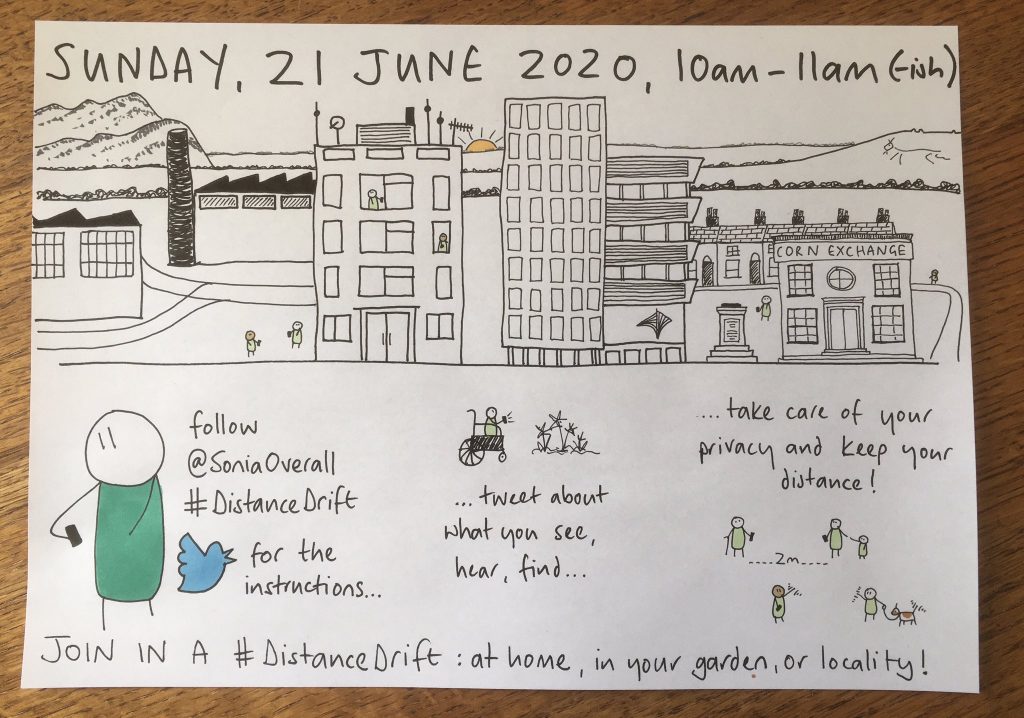 SUNDAY, 21 JUNE 2020, 10am – 11am (-ish)
CORN EXCHANGE
follow
@SoniaOverall
#DistanceDrift
for the
instructions...
...tweet about
what you see,
hear, find...
....take care of your
privacy and keep your
distance!
....2m......
JOIN IN A #DistanceDrift: at home, in your garden, or locality!